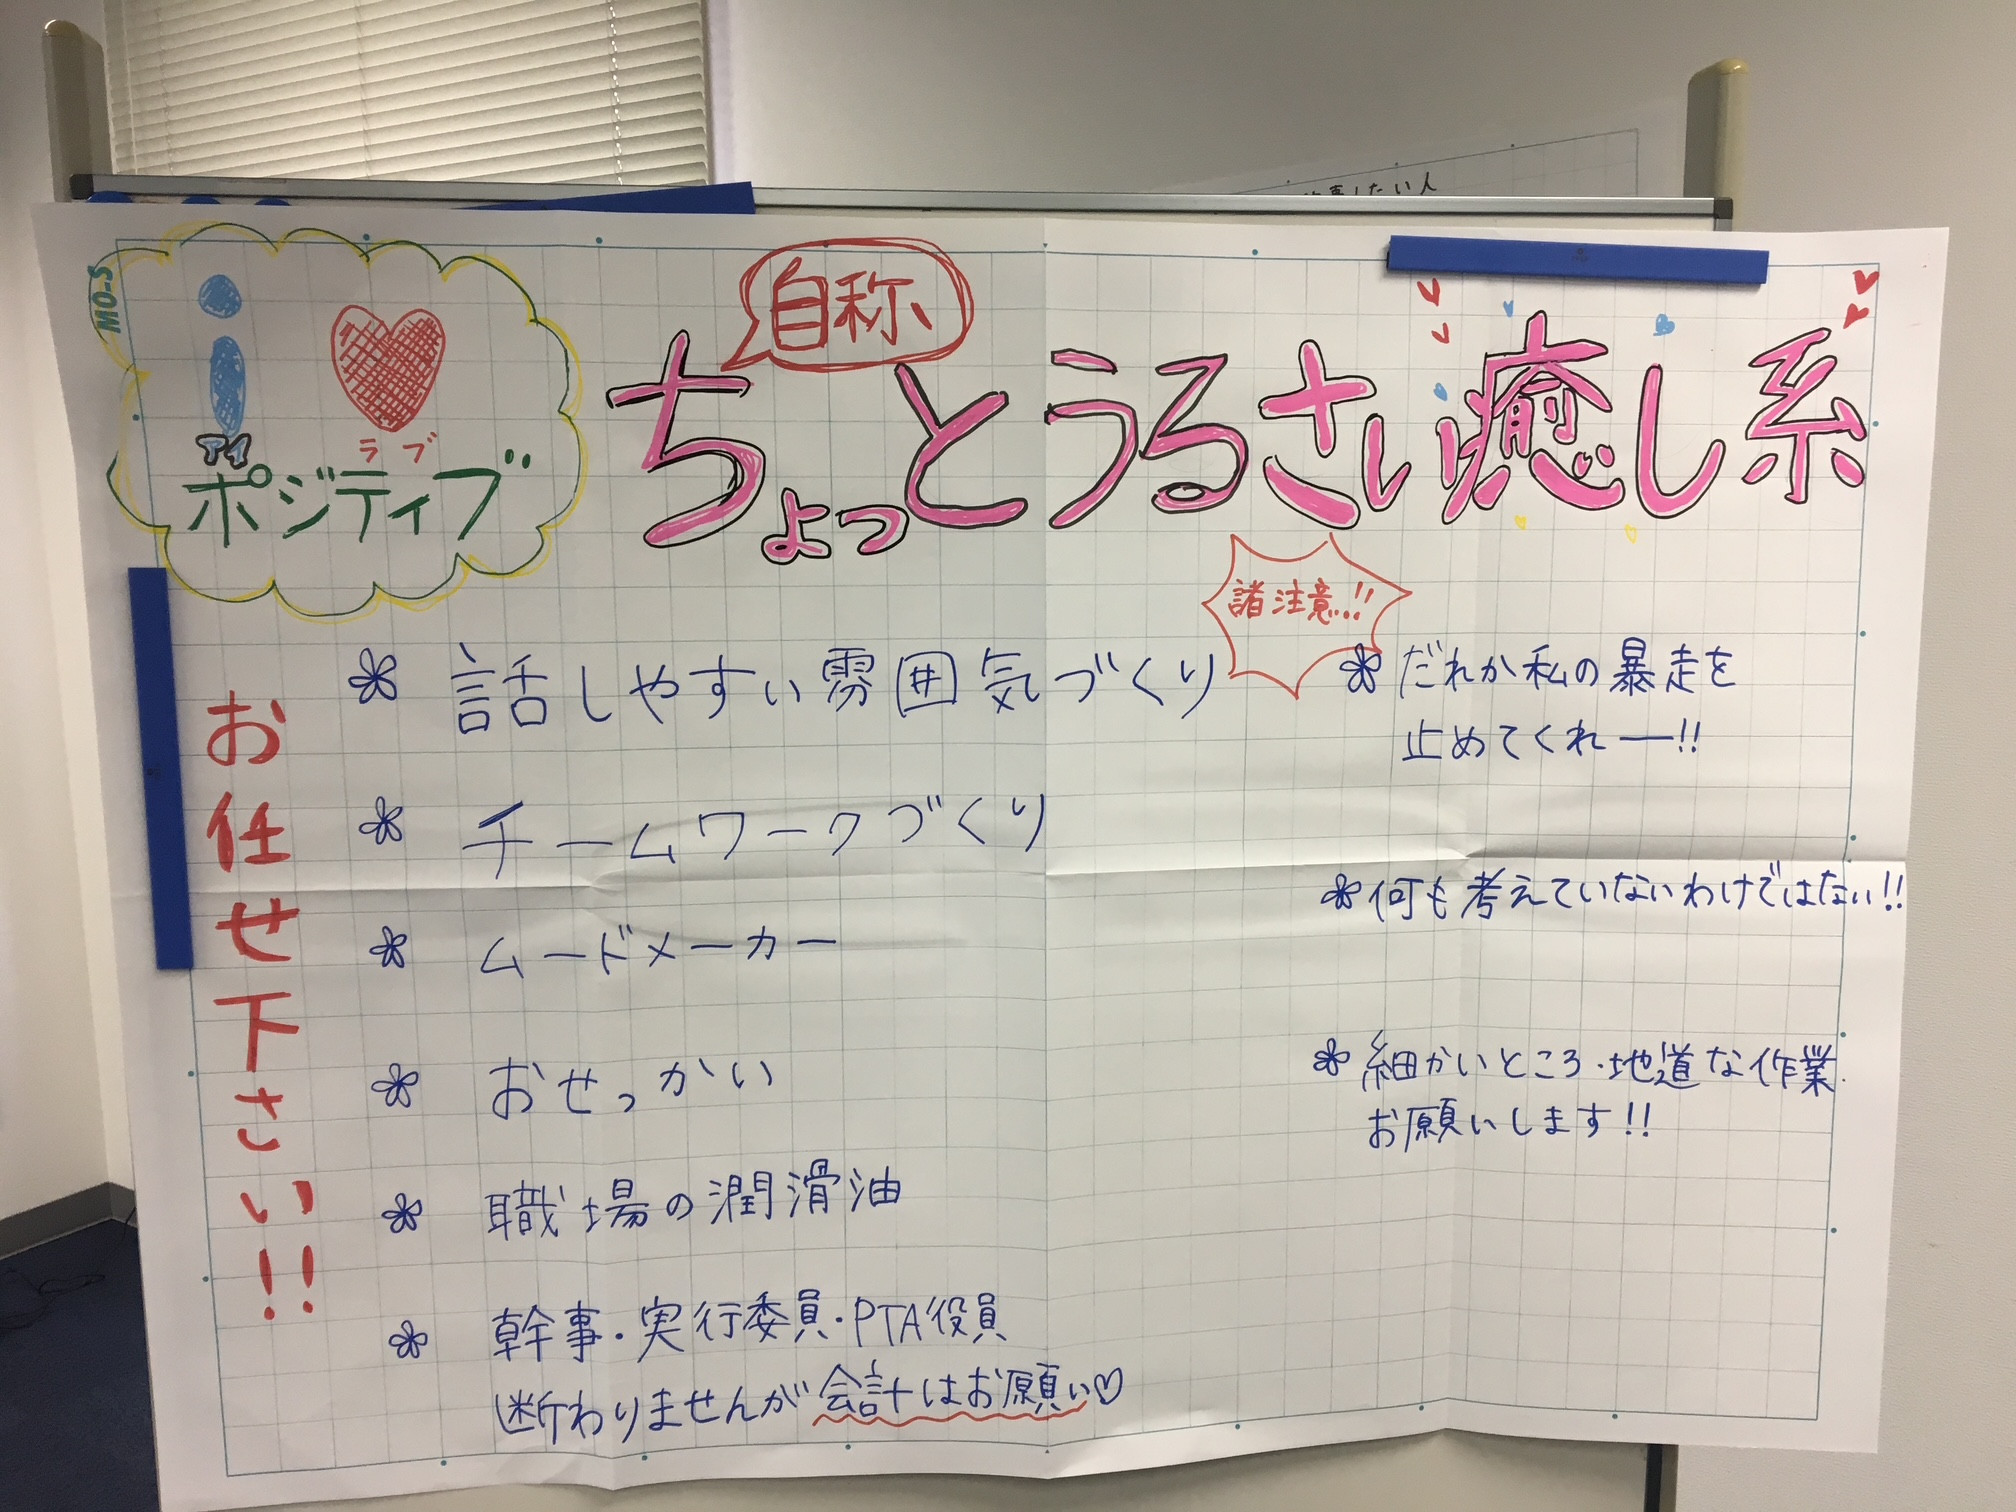 MO-S
i ♥
アイ ラブ
ポジティブ
自称、
ちょっとうるさい癒し系
お任せ下さい!!
* 話しやすい雰囲気づくり
* チームワークづくり
* ムードメーカー
* おせっかい
* 職場の潤滑油
* 幹事・実行委員・PTA役員
断わりませんが会計はお願い♡
諸注意..!!
* だれか私の暴走を
止めてくれー!!
* 何も考えていないわけではない!!
* 細かいところ・地道な作業
お願いします!!
したい人